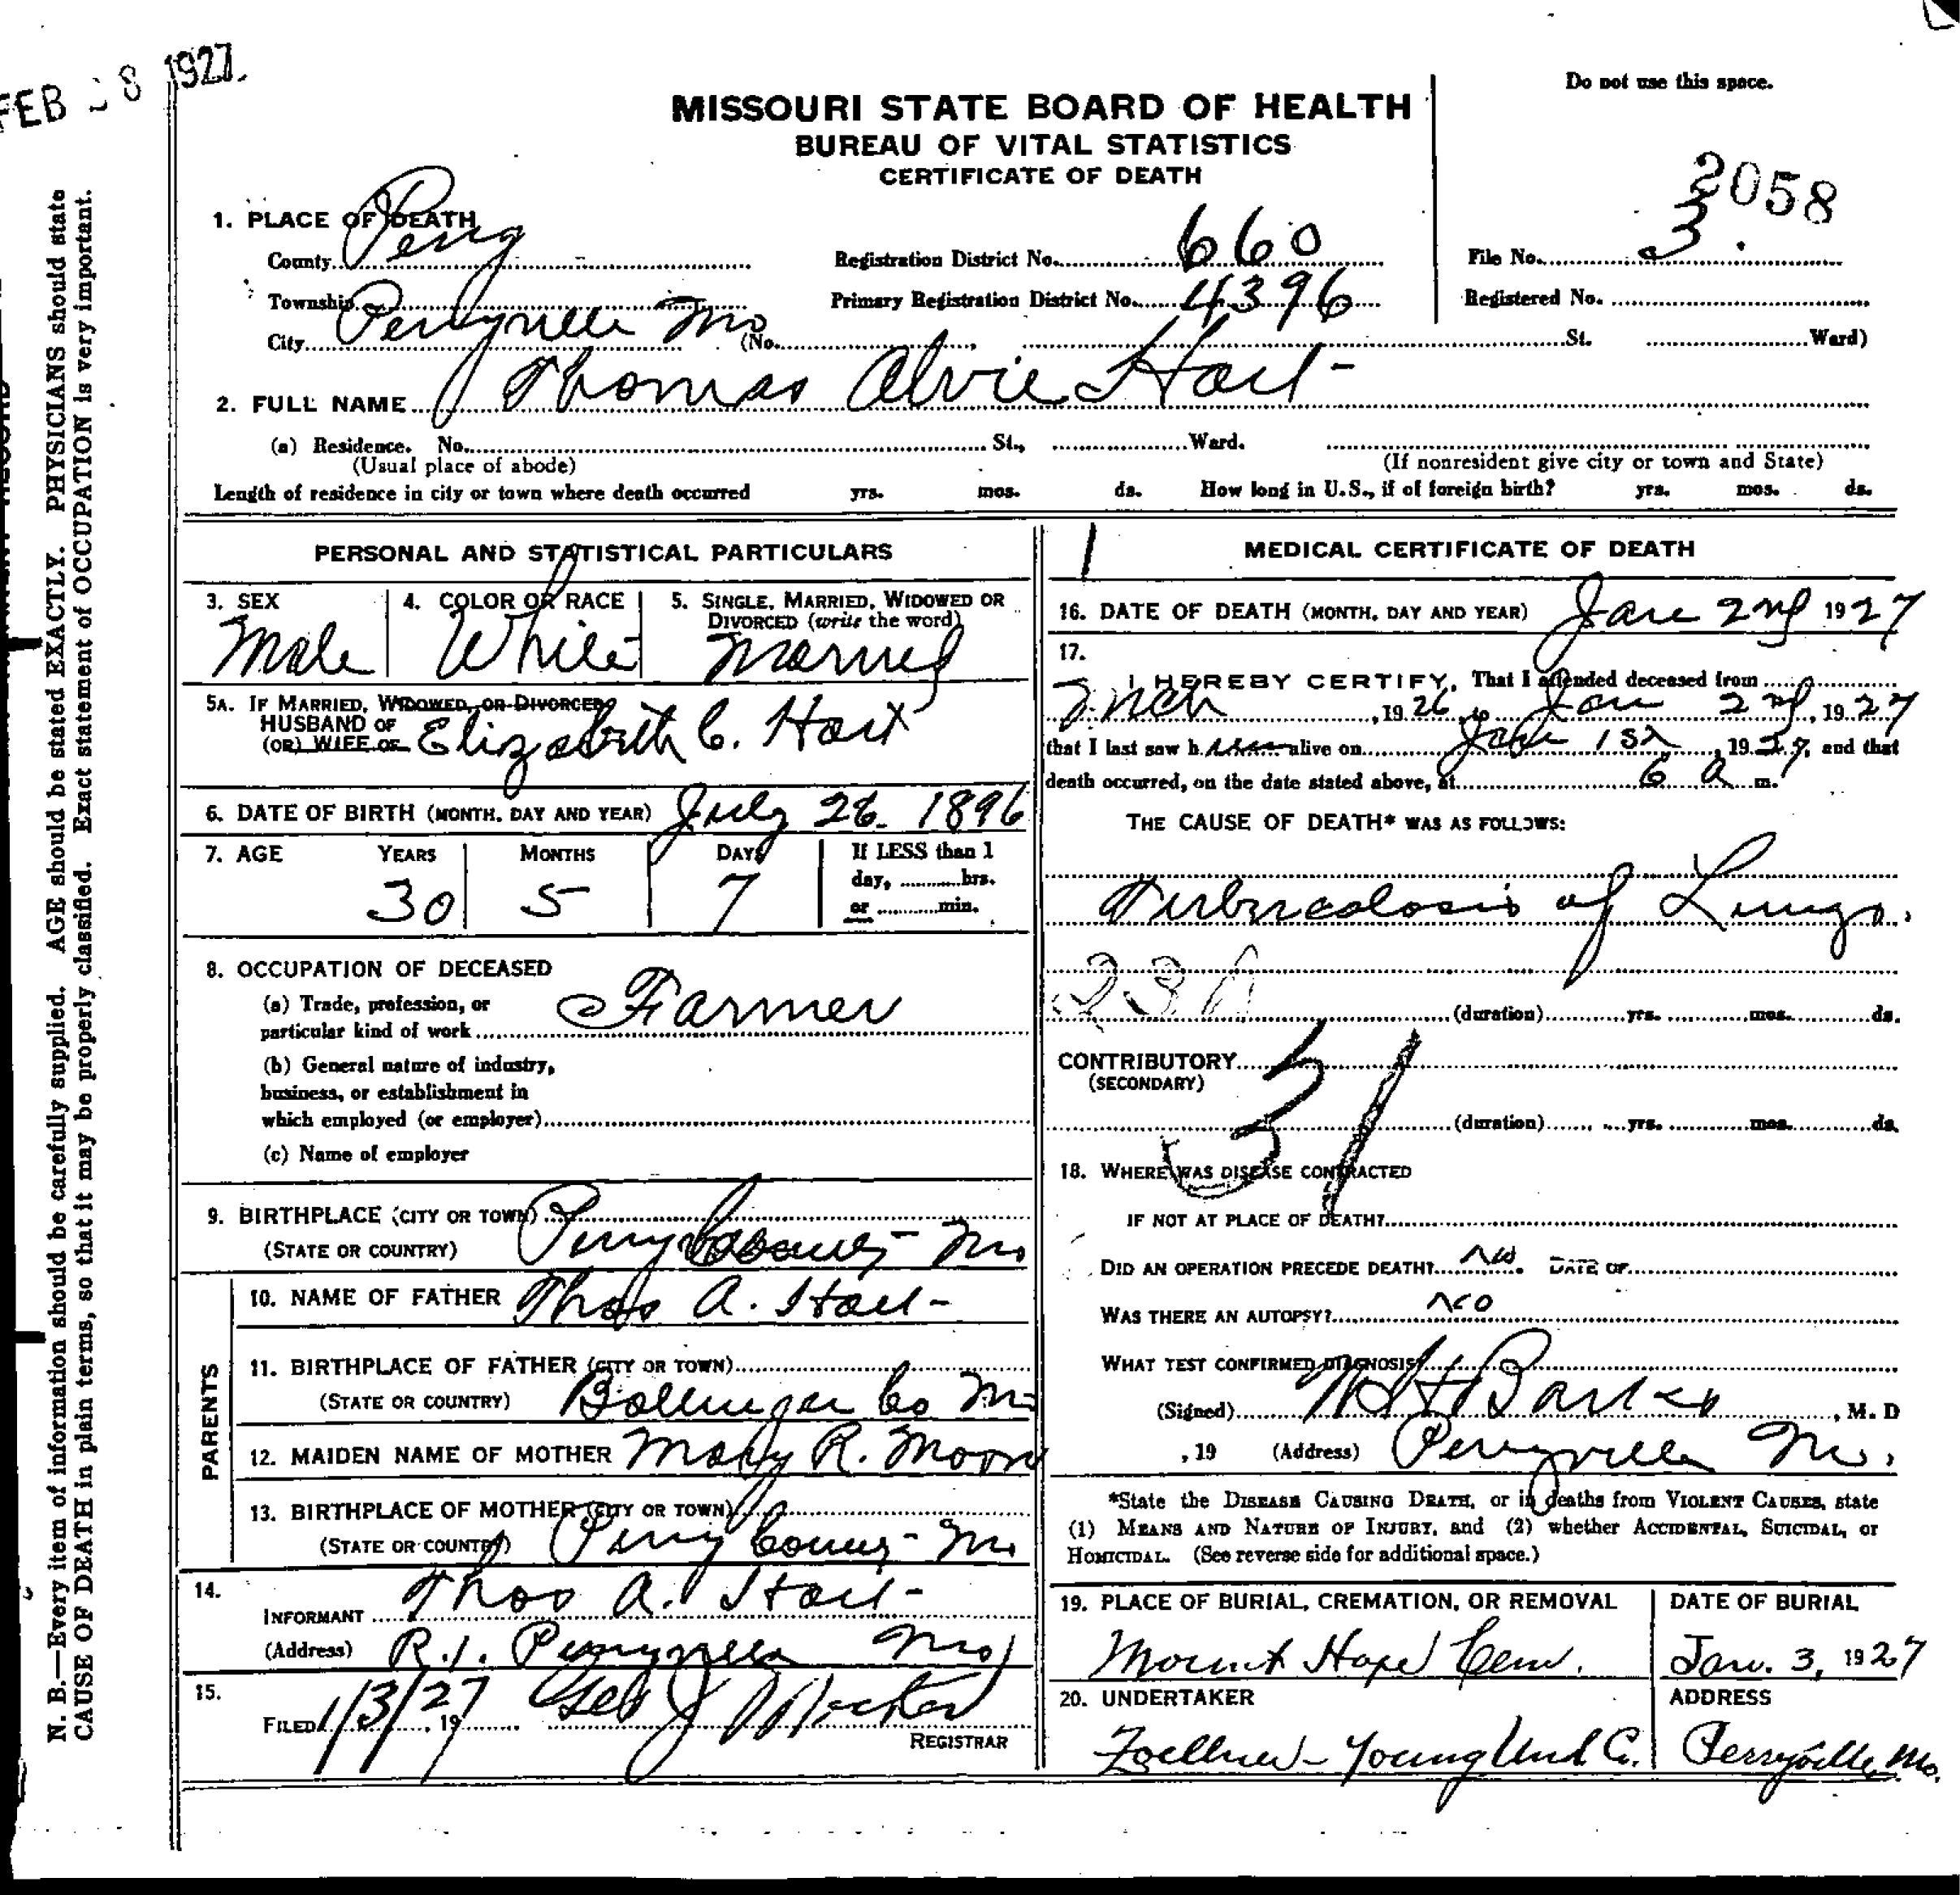 FEB 8 1927
Do not use this space.
MISSOURI STATE BOARD OF HEALTH
BUREAU OF VITAL STATISTICS
CERTIFICATE OF DEATH
2058
1. PLACE OF DEATH
County Perry Registration District No. 660 File No. 3.
Township Primary Registration District No. 4396 Registered No.
City Perryville Mo (No. St. Ward)
2. FULL NAME Thomas Alvie Hart
(a) Residence. No. St., Ward.
(Usual place of abode) (If nonresident give city or town and State)
Length of residence in city or town where death occurred yrs. mos. ds. How long in U.S., if of foreign birth? yrs. mos. ds.
PERSONAL AND STATISTICAL PARTICULARS
3. SEX 4. COLOR OR RACE 5. SINGLE, MARRIED, WIDOWED OR
DIVORCED (write the word)
Male White Married
5A. IF MARRIED, WIDOWED, OR DIVORCED
HUSBAND OF
(OR) WIFE OF Elizabeth C. Hart
6. DATE OF BIRTH (MONTH, DAY AND YEAR) July 26. 1896
7. AGE YEARS MONTHS DAYS If LESS than 1
day, hrs.
or min.
30 5 7
8. OCCUPATION OF DECEASED
(a) Trade, profession, or
particular kind of work Farmer
(b) General nature of industry,
business, or establishment in
which employed (or employer)
(c) Name of employer
9. BIRTHPLACE (CITY OR TOWN)
(STATE OR COUNTRY) Perry County Mo
PARENTS
10. NAME OF FATHER Thos A. Hart
11. BIRTHPLACE OF FATHER (CITY OR TOWN)
(STATE OR COUNTRY) Bollinger Co Mo
12. MAIDEN NAME OF MOTHER Mary R. Moore
13. BIRTHPLACE OF MOTHER (CITY OR TOWN)
(STATE OR COUNTRY) Perry County Mo
14.
INFORMANT Thos A. Hart
(Address) R.1. Perryville Mo
15.
FILED 1/3/27, 19 Geo J
REGISTRAR
MEDICAL CERTIFICATE OF DEATH
16. DATE OF DEATH (MONTH, DAY AND YEAR) Jan 2nd 1927
17.
I HEREBY CERTIFY, That I attended deceased from
, 1926, to Jan 2nd, 1927
that I last saw h alive on Jan 1st, 1927, and that
death occurred, on the date stated above, at 6 a m.
THE CAUSE OF DEATH* WAS AS FOLLOWS:
Tuberculosis of Lungs.
(duration) yrs. mos. ds.
CONTRIBUTORY
(SECONDARY)
31
(duration) yrs. mos. ds.
18. WHERE WAS DISEASE CONTRACTED
IF NOT AT PLACE OF DEATH?
DID AN OPERATION PRECEDE DEATH? No. DATE OF
WAS THERE AN AUTOPSY? No
WHAT TEST CONFIRMED DIAGNOSIS?
(Signed) , M. D
, 19 (Address) Perryville Mo.
*State the DISEASE CAUSING DEATH, or in deaths from VIOLENT CAUSES, state
(1) MEANS AND NATURE OF INJURY, and (2) whether ACCIDENTAL, SUICIDAL, or
HOMICIDAL. (See reverse side for additional space.)
19. PLACE OF BURIAL, CREMATION, OR REMOVAL DATE OF BURIAL
Mount Hope Cem. Jan. 3, 1927
20. UNDERTAKER ADDRESS
Zoellner-Young Und Co. Perryville Mo.
N. B.—Every item of information should be carefully supplied. AGE should be stated EXACTLY. PHYSICIANS should state
CAUSE OF DEATH in plain terms, so that it may be properly classified. Exact statement of OCCUPATION is very important.